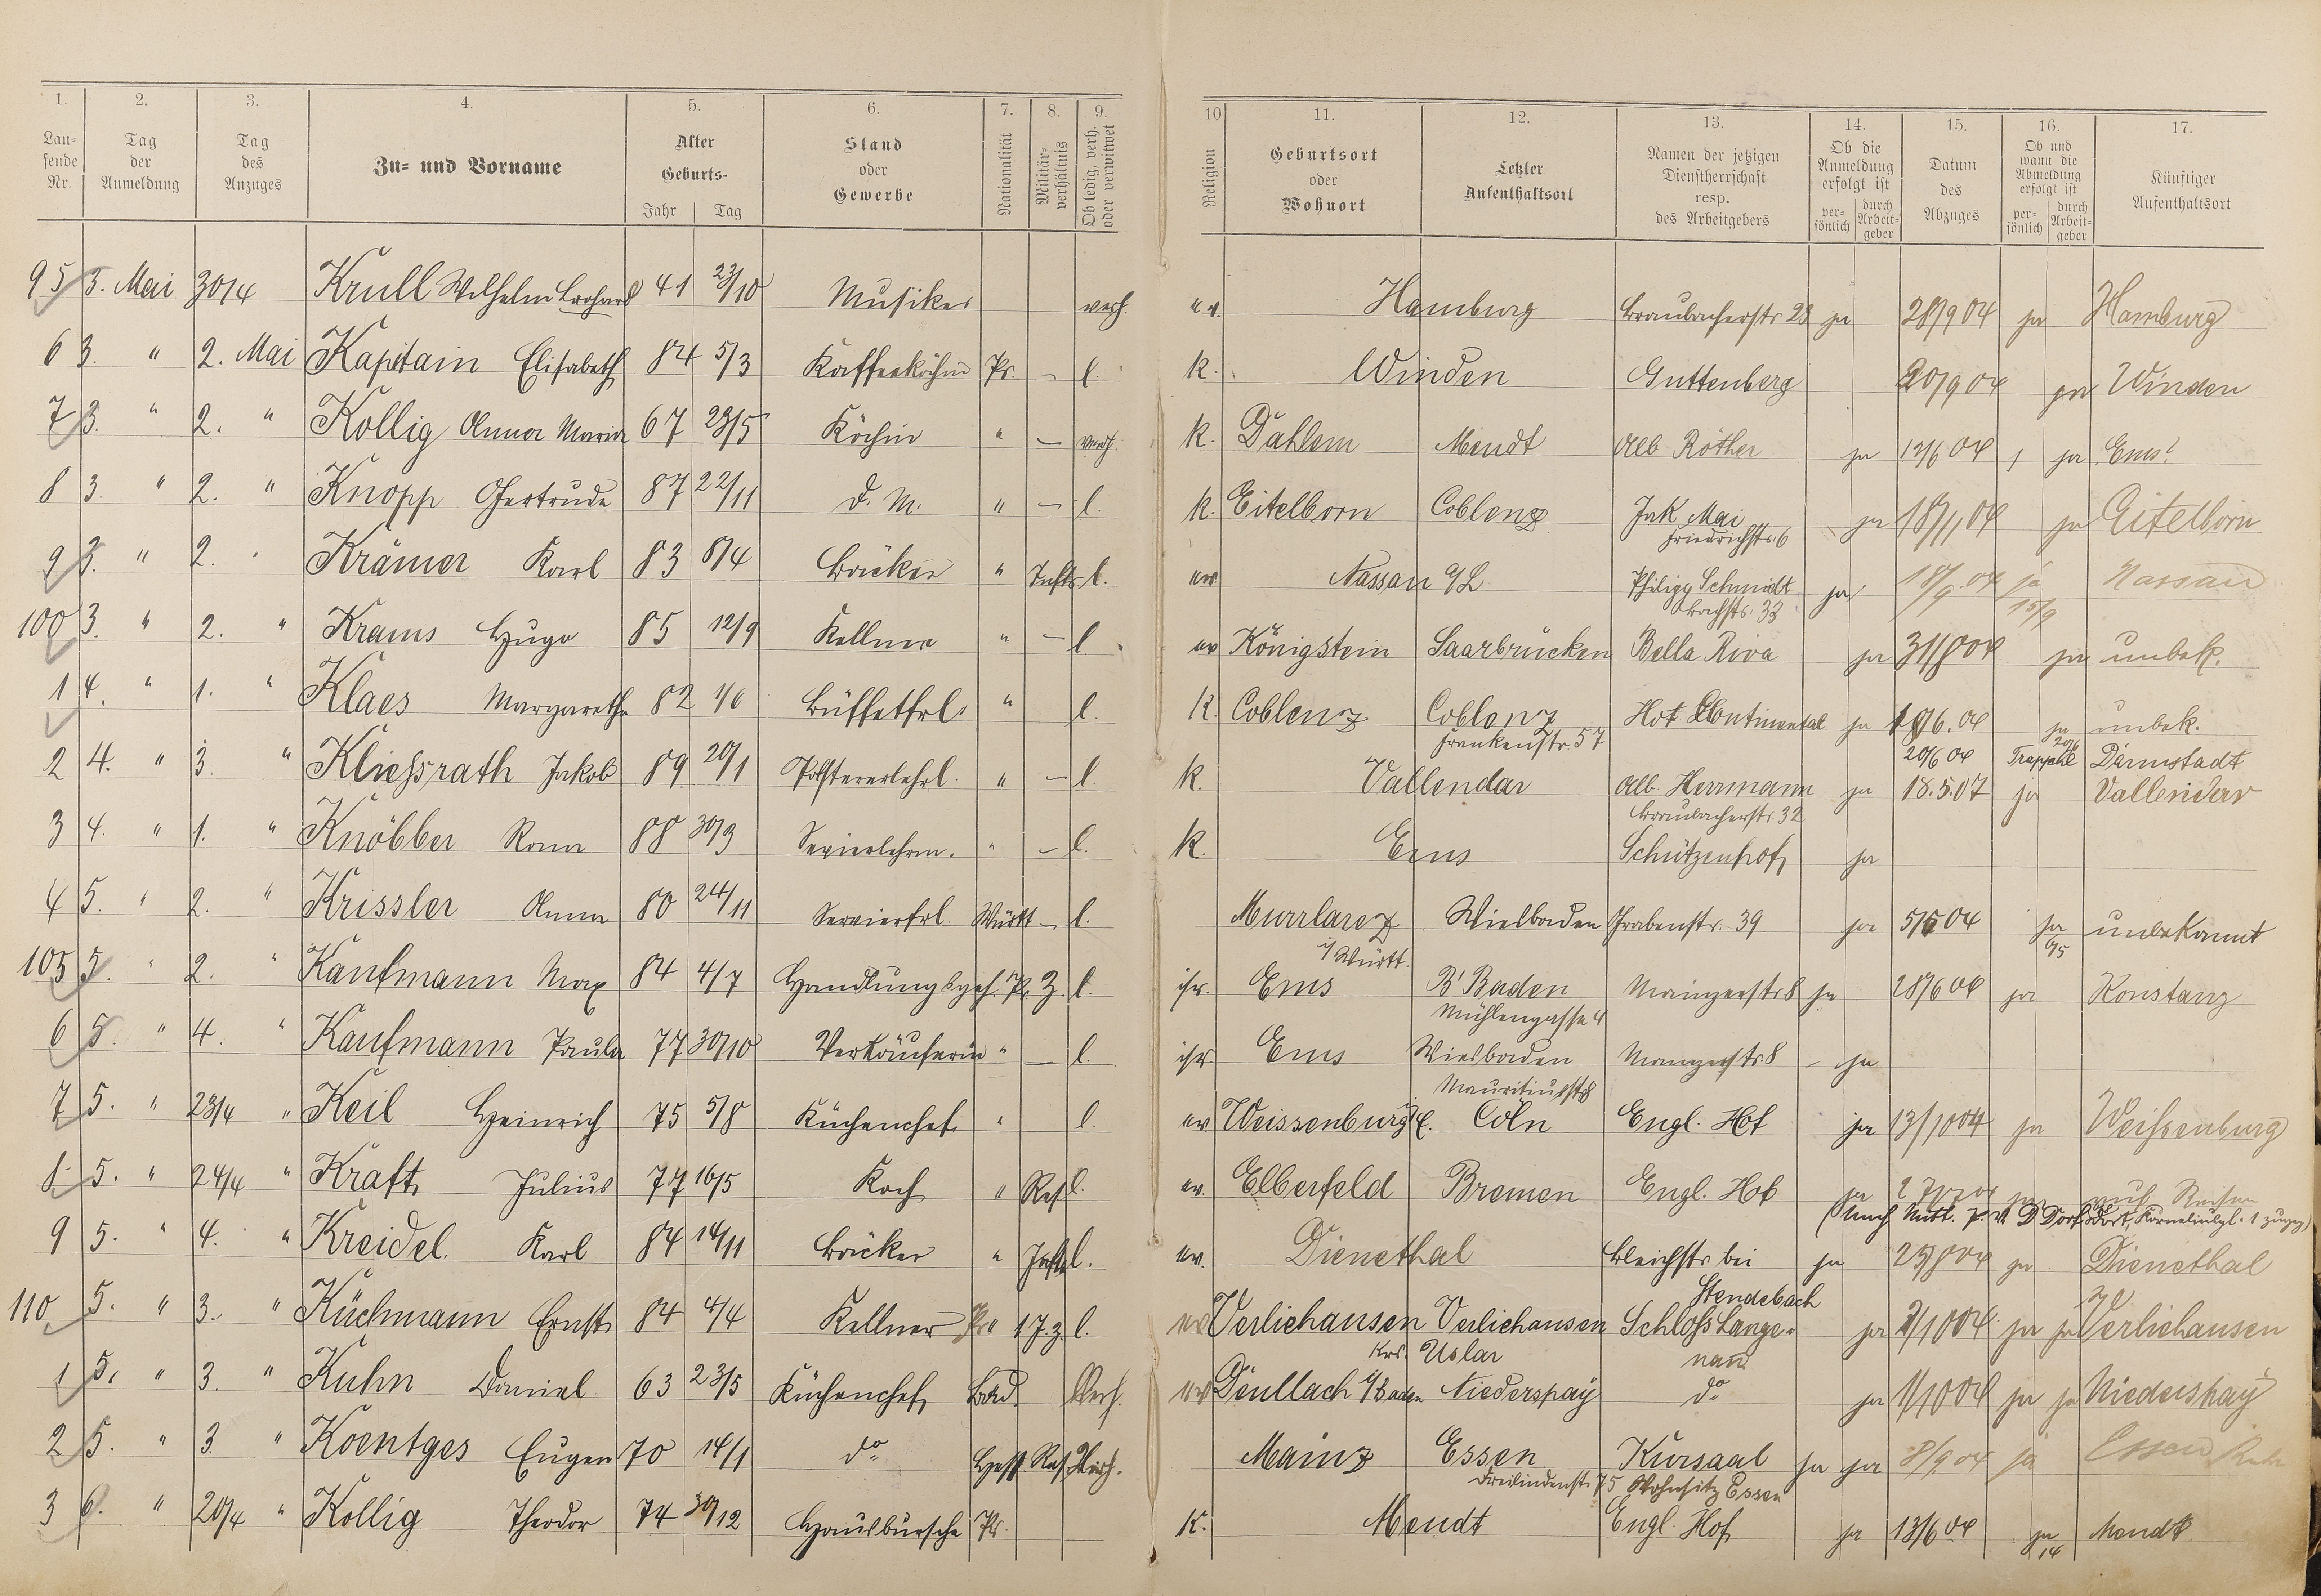 1. 2. 3. 4. 5. 6. 7. 8. 9. 10 11. 12. 13. 14. 15. 16. 17.
Lau-fende Nr. Tag der Anmeldung Tag des Anzuges Zu- und Vorname Alter Geburts- Jahr Tag Stand oder Gewerbe Nationalität Militär-verhältnis Ob ledig, verh. oder verwitwet Religion Geburtsort oder Wohnort Letzter Aufenthaltsort Namen der jetzigen Dienstherrschaft resp. des Arbeitgebers Ob die Anmeldung erfolgt ist per-sönlich durch Arbeit-geber Datum des Abzuges Ob und wann die Abmeldung erfolgt ist per-sönlich durch Arbeit-geber Künftiger Aufenthaltsort
95 3. Mai 30/4 Krull Wilhelm 41 23/10 Musiker verh. ev. Hamburg Braubacherstr 23 ja 28/9 04 ja Hamburg
6 3. " 2. Mai Kapitain Elisabeth 84 5/3 Kaffeeköchin Pr. — l. k. Winden Guttenberg 20/9 04 ja Winden
7 3. " 2. " Kollig Anna Maria 67 23/5 Köchin " — verh. k. Dahlem Mendt Alb Röther ja 12/6 04 ja Ems
8 3. " 2. " Knopp Gertrude 87 22/11 d. M. " — l. k. Eitelborn Coblenz Jak Mai ja 18/11 04 ja Eitelborn
Friedrichstr. 6
9 3. " 2. " Krämer Karl 83 8/4 Bäcker " l. ev Nassau a/L Philipp Schmidt ja 18/9 04 ja Nassau
Bachstr. 33 15/9
100 3. " 2. " Krams Hugo 85 12/9 Kellner " — l. ev Königstein Saarbrücken Bella Riva ja 31/8 04 ja unbek.
1 4. " 1. " Klaes Margarethe 82 1/6 Büffetfrl. " l. k. Coblenz Coblenz Hot Continental ja 6.04 ja unbek.
Frankenstr. 57 20/6 04 Darmstadt
2 4. " 3. " Kliessrath Jakob 89 20/1 Polstererlehrl. " — l. k. Vallendar Alb. Herrmann ja 18.5.07 ja Vallendar
Braubacherstr. 32
3 4. " 1. " Knöbber Rosa 88 30/3 " — l. k. Ems Schützenhof ja
4 5. " 2. " Krissler Anna 80 24/11 Servierfrl. Württ — l. Wiesbaden Grabenstr. 39 ja 5/5 04 ja unbekannt
i/Württ. 6/5
105 5. " 2. " Kaufmann Max 84 4/7 Handlungsgeh. Pr. Z. l. isr. Ems B'Baden Mainzerstr 8 ja 28/6 04 ja Konstanz
Mühlengasse 4
6 5. " 4. " Kaufmann Paula 77 30/10 Verkäuferin " — l. isr. Ems Wiesbaden Mainzerstr. 8 ja
Mauritiusstr 8
7 5. " 23/4 " Keil Heinrich 75 5/8 Küchenchef " l. ev. Weissenburg E. Cöln Engl. Hof ja 13/10 04 ja Weißenburg
8 5. " 24/4 " Kraft Julius 77 16/5 Koch " Res l. ev. Elberfeld Bremen Engl. Hof ja ja auf Reisen
9 5. " 4. " Kreidel Karl 84 14/11 Bäcker " l. ev. Dienethal Bleichstr bei ja 25/8 04 ja Dienethal
Stendebach
110 5. " 3. " Küchmann Ernst 84 4/4 Kellner Pr. 1 J. z l. ev Verliehausen Verliehausen Schloß Lange- ja 2/10 04 ja ja Verliehausen
Krs. Uslar nau
1 5. " 3. " Kuhn Daniel 63 23/5 Küchenchef Bad. Verh. ev i/Baden Niederspay do ja 1/10 04 ja ja Niederspay
2 5. " 3. " Koentges Eugen 70 14/1 do Hess. Res Verh. Mainz Essen Kursaal ja ja 8/9 04 ja Essen Ruhr
Dreilindenstr. 75 Wohnsitz Essen
3 6. " 20/4 " Kollig Theodor 74 30/12 Hausbursche Pr. k. Mendt Engl. Hof ja 13/6 04 ja Mendt
14